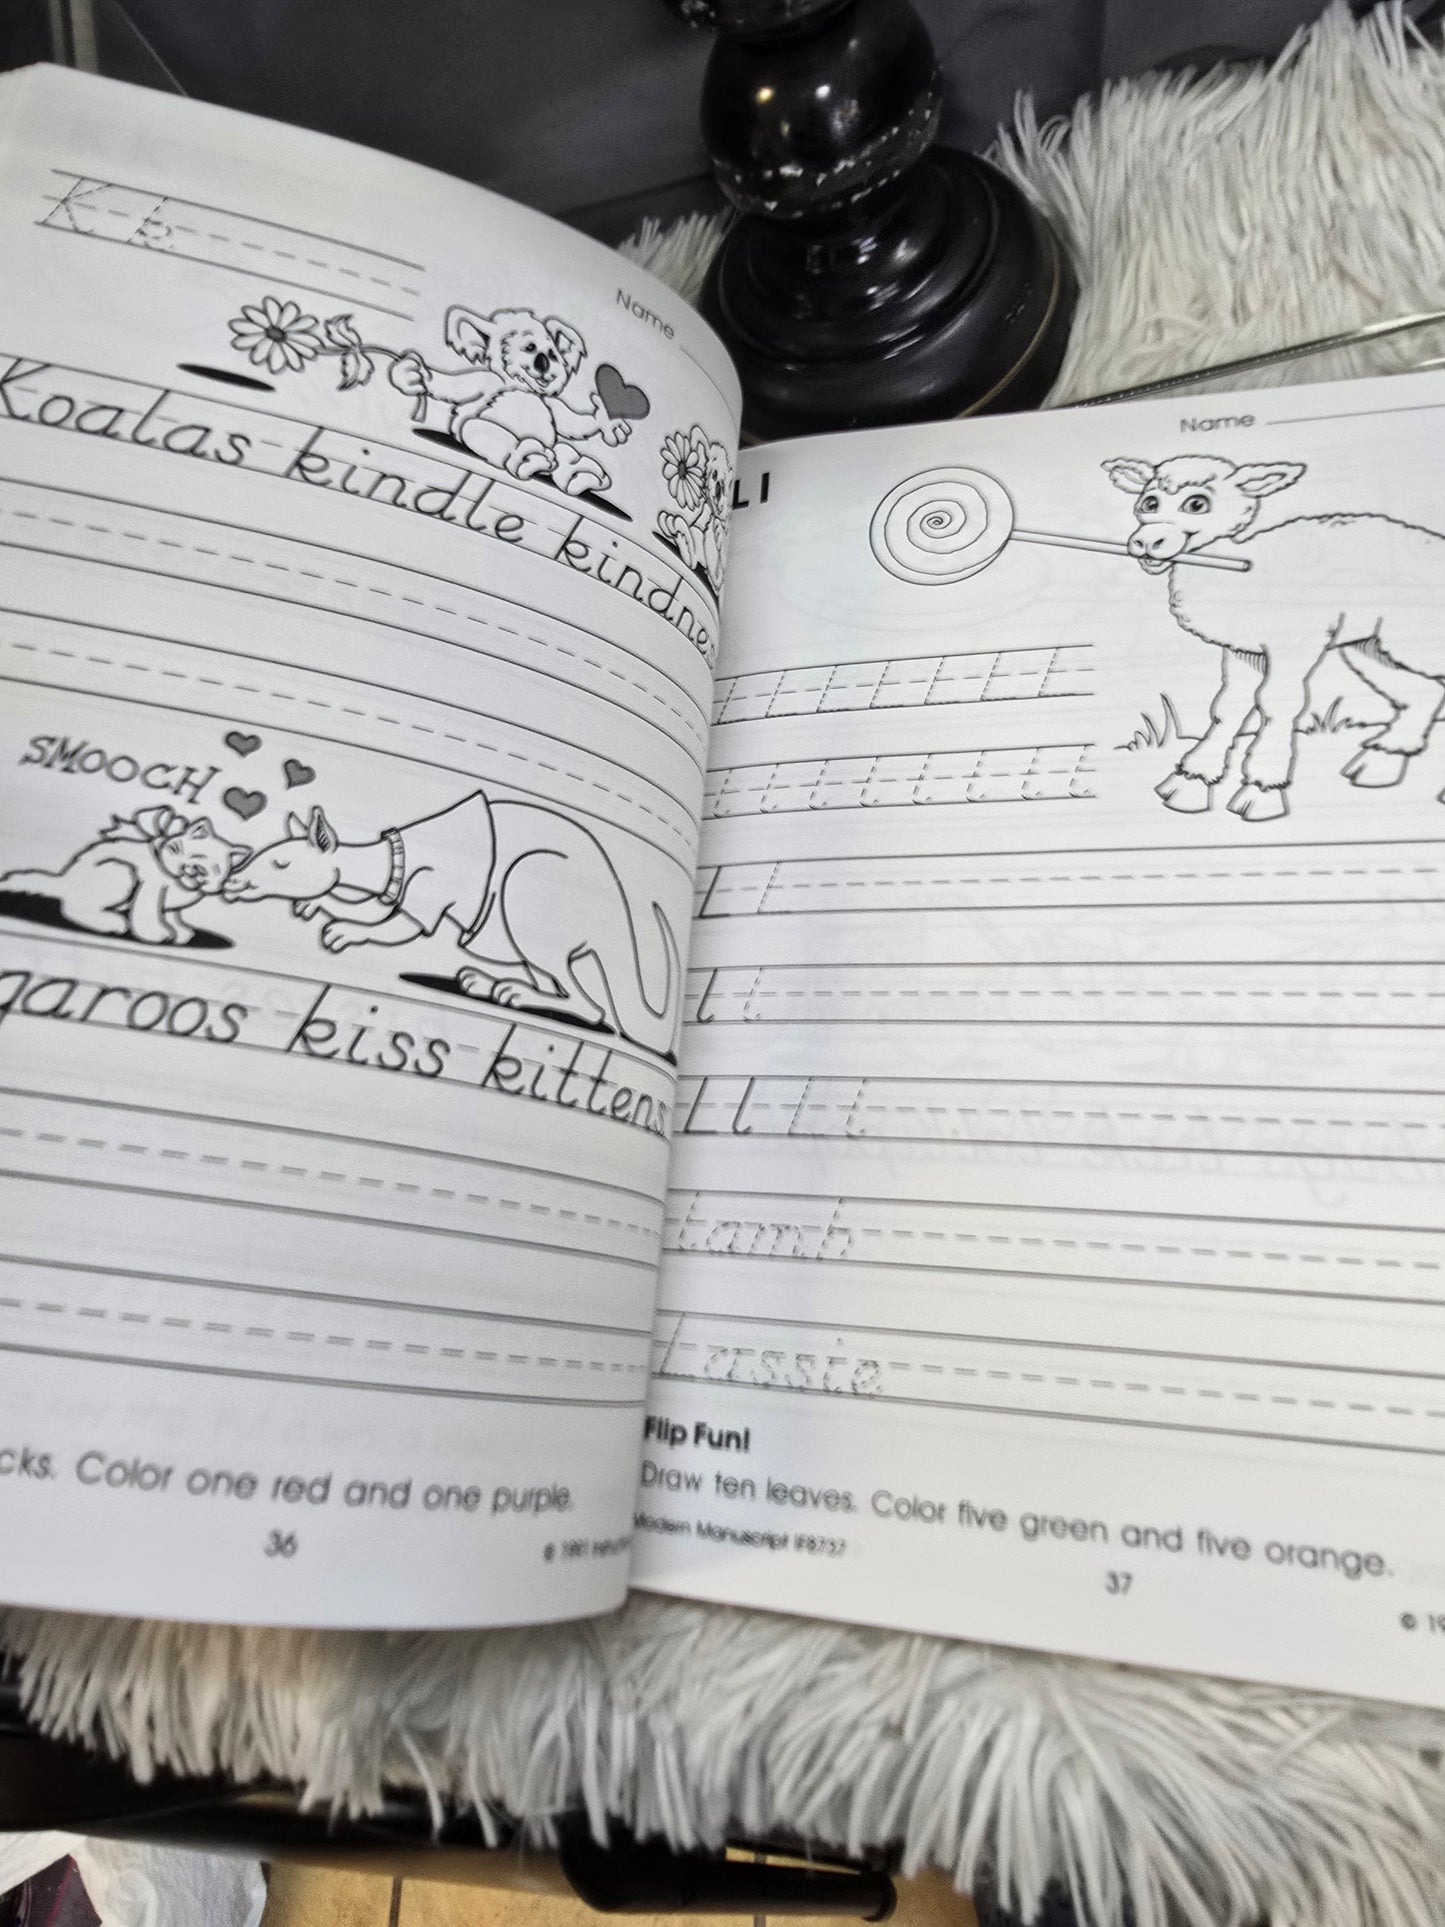 K k
Name
Koalas kindle kindnes
SMOOCH
garoos kiss kittens.
cks. Color one red and one purple.
36
© 1991
Name
L l
L L L L L L L
l l l l l l l l
L L
l l
L l L l
lamb
Lassie
Flip Fun!
Draw ten leaves. Color five green and five orange.
Modern Manuscript IF8737
37
© 19